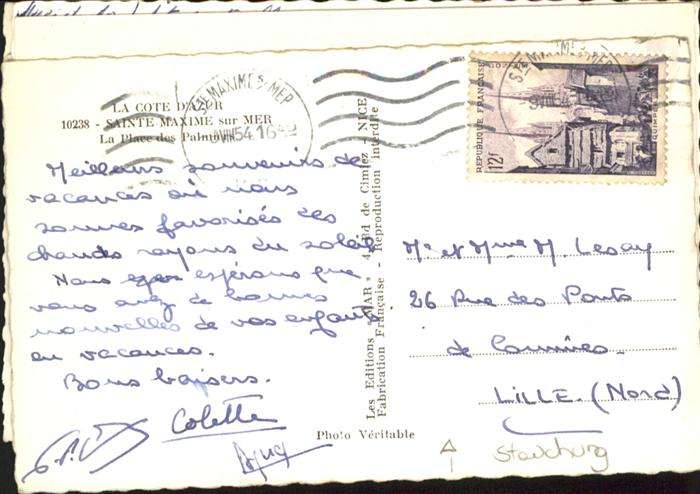 LA COTE D'AZUR
10238 - SAINTE MAXIME sur MER
La Place des Palmiers
Meilleurs souvenirs de
vacances où nous
sommes favorisés des
chauds rayons du soleil
Nous espérons que
vous avez de bonnes
nouvelles de vos enfants
en vacances.
Bons baisers.
Colette
Photo Véritable
Les Editions "MAR", Bd de Cimiez - NICE
Fabrication Française - Reproduction interdite
STE MAXIME S-MER
54
STE MAXIME S-MER
REPUBLIQUE FRANÇAISE
12f
Mr et Mme M. Lesay
26 Rue des Ponts
de Comines
LILLE. (Nord)